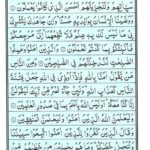 سَيِّاٰتِهِمْ وَلَنَجْزِيَنَّهُمْ اَحْسَنَ الَّذِيْ كَانُوْا يَعْمَلُوْنَ
وَوَصَّيْنَا الْاِنْسَانَ بِوَالِدَيْهِ حُسْنًا وَاِنْ جَاهَدٰكَ لِتُشْرِكَ
بِيْ مَا لَيْسَ لَكَ بِهٖ عِلْمٌ فَلَا تُطِعْهُمَا اِلَيَّ مَرْجِعُكُمْ
فَاُنَبِّئُكُمْ بِمَا كُنْتُمْ تَعْمَلُوْنَ وَالَّذِيْنَ اٰمَنُوْا وَعَمِلُوا
الصّٰلِحٰتِ لَنُدْخِلَنَّهُمْ فِي الصّٰلِحِيْنَ وَمِنَ النَّاسِ
مَنْ يَّقُوْلُ اٰمَنَّا بِاللّٰهِ فَاِذَا اُوْذِيَ فِي اللّٰهِ جَعَلَ فِتْنَةَ
النَّاسِ كَعَذَابِ اللّٰهِ وَلَئِنْ جَاءَ نَصْرٌ مِّنْ رَّبِّكَ لَيَقُوْلُنَّ
اِنَّا كُنَّا مَعَكُمْ اَوَلَيْسَ اللّٰهُ بِاَعْلَمَ بِمَا فِيْ صُدُوْرِ الْعٰلَمِيْنَ
وَلَيَعْلَمَنَّ اللّٰهُ الَّذِيْنَ اٰمَنُوْا وَلَيَعْلَمَنَّ الْمُنٰفِقِيْنَ
وَقَالَ الَّذِيْنَ كَفَرُوْا لِلَّذِيْنَ اٰمَنُوا اتَّبِعُوْا سَبِيْلَنَا